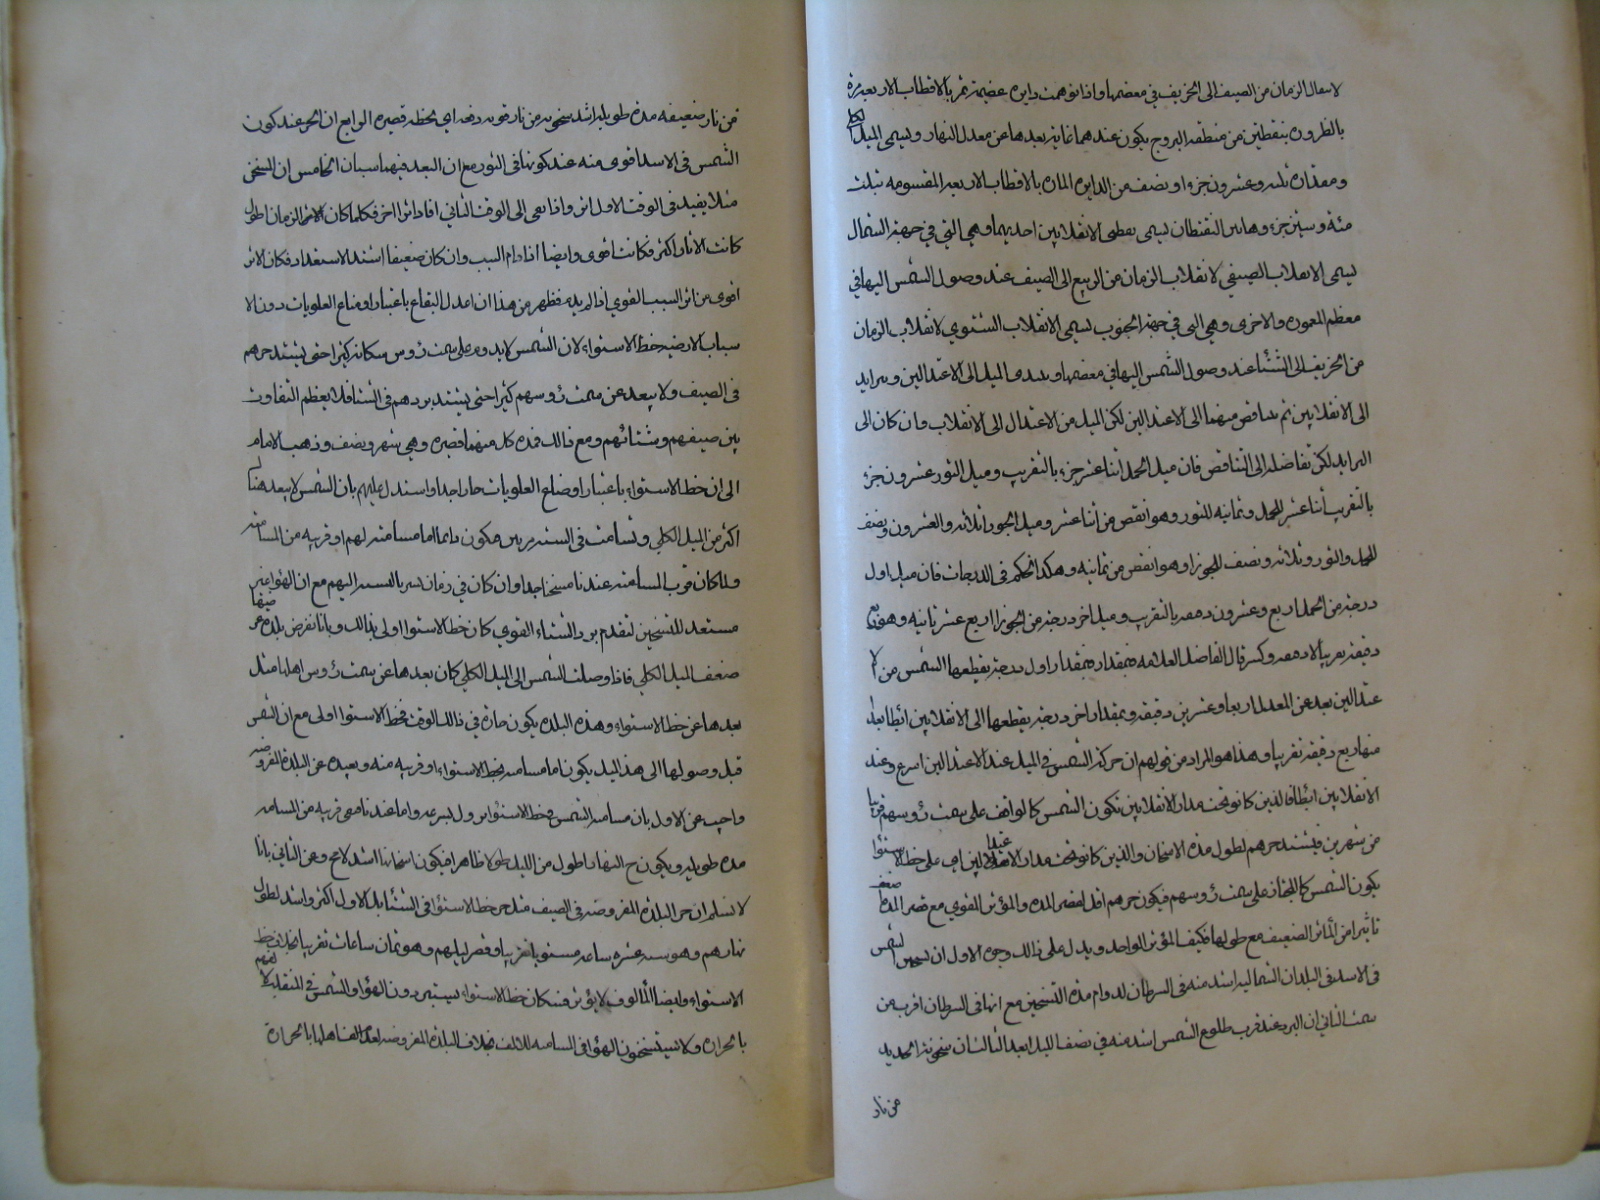 لانتقال الزمان من الصيف الى الخريف في معضمها واذا توهمت دايره عضيمة تمر بالاقطاب الاربعة مرة
بالظروره بنقطتين من منطقه البروج يكون عندهما غاية بعدها عن معدل النهار ويسمى الميل الكلي
ومقداره ثلثه وعشرون جزءا ونصف من الدايره الماره بالاقطاب الاربعه المقسومه بثلث
مئة وستين جزء وهاتان النقطتان يسمى نقطتي الانقلابين احديهما وهي التي في جهة الشمال
يسمى الانقلاب الصيفي لانقلاب الزمان من الربيع الى الصيف عند وصول الشمس اليها في
معظم المعموره والاخرى وهي التي في جهة الجنوب يسمى الانقلاب الشتوي لانقلاب الزمان
من الخريف الى الشتاء عند وصول الشمس اليها في معضمها ويبتدى الميل الى الاعتدالين ويتزايد
الى الانقلابين ثم يتناقص منهما الى الاعتدالين لكن الميل من الاعتدال الى الانقلاب وان كان الى
التزايد لكن تفاضله الى التناقص فان ميل الحمل اثنا عشر جزء بالتقريب وميل الثور عشرون جزء
بالتقريب اثنا عشر للحمل وثمانيه للثور وهو انقص من اثنا عشر وميل الجوزا ثلاثه والعشرون ونصف
للحمل والثور وثلاثه ونصف للجوزا وهو انقص من ثمانيه وهكذا الحكم في الدرجات فان ميل اول
درجة من الحمل اربع وعشرون دقيقه بالتقريب وميل اخر درجة من الجوزا اربع عشر ثانيه وهو ربع
دقيقة تقريبا لا دقيقه وكسر قال الفاضل العلامه فبمقدار اول درجة يقطعها الشمس من الا
عتدالين بعد عن المعدل اربعا وعشرين دقيقة وبمقدار اخر درجة يقطعها الى الانقلابين ايضا بعد
منها ربع دقيقة تقريبا وهذا هو المراد من قولهم ان حركة الشمس في الميل عند الاعتدالين اسرع وعند
الانقلابين ابطأ فالذين كانوا تحت مدار الانقلابين تكون الشمس كالواقف على سمت رؤسهم قريبا
من شهرين فيشتد حرهم لطول مدة الاسخان والذين كانوا تحت مدار الاعتدالين اي على خط الاستوا
يكون الشمس كالمجتاز على سمت رؤسهم فيكون حرهم اقل لقصر المده والمؤثر القوي مع قصر المده اضعف
تاثيرا من المؤثر الضعيف مع طولها فكيف المؤثر الواحد ويدل على ذالك وجوه الاول ان تسخين الشمس
في الاسد في البلدان الشماليه اشد منه في السرطان لدوام مدة التسخين مع انها في السرطان اقرب من
سمت الثاني ان البرد عند قرب طلوع الشمس اشد منه في نصف الليل ابعد الثالث ان سخونة الحديد
من نار
من نار ضعيفه مدة طويله اشد سخونه من نار قويه دفعه اي لحظه قصيره الرابع ان الحر عند كون
الشمس في الاسد اقوى منه عند كونها في الثور مع ان البعد فيهما سيان الخامس ان المسخن
مثلا يفيد في الوقت الاول اثر واذا بقى الى الوقت الثاني افاد اثرا اخر فكلما كان الزمان اطول
كانت الاثار اكثر فكانت اقوى وايضا اذا دام السبب وان كان ضعيفا اشتد الاستعداد فكان الاثر
اقوى من اثر السبب القوي اذا لم يدم فظهر من هذا ان اعدل البقاع باعتبار اوضاع العلويات دون الا
سباب الارضيه خط الاستواء لان الشمس لا يدوم على سمت رؤس سكانه كثيرا حتى يشتد حرهم
في الصيف ولا يبعد عن سمت رؤسهم كثيرا حتى يشتد بردهم في الشتا فلا يعظم التفاوت
بين صيفهم وشتائهم ومع ذالك فمدة كل منهما قصيره وهي شهر ونصف وذهب الامام
الى ان خط الاستواء باعتبار اوضاع العلويات حار جدا واستدل عليهم بان الشمس لا يبعد هناك
اكثر من الميل الكلي وتسامت في السنه مرتين فيكون دايما اما مسامته لهم او قريبه من المسامته
ولما كان قرب المسامته عندنا مسخنا جدا وان كان في زمان يسير بالنسبه اليهم مع ان الهواء غير
مستعد للتسخين لتقدم برد الشتاء القوي كان خط الاستوا اولى بذالك وبانا نفرض بلدة عرضها
ضعف الميل الكلي فاذا وصلت الشمس الى الميل الكلي كان بعدها عن سمت رؤس اهلها مثل
بعدها عن خط الاستواء وهذه البلده يكون حارة في ذالك الوقت فخط الاستوا اولى مع ان الشمس
قبل وصولها الى هذا الميل يكون اما مسامته لخط الاستواء او قريبه منه وبعيده عن البلده المفروضه
واجيب عن الاول بان مسامته الشمس في خط الاستوا يزول بسرعه واما عندنا فتبقى قريبه من المسامته
مدة طويله ويكون ح النهار اطول من الليل طولا ظاهرا فيكون اسخانها اشد لامحه وعن الثاني بانا
لا نسلم ان حر البلده المفروضه في الصيف مثل حر خط الاستوا في الشتا بل الاول اكثر واشد لطول
نهارهم وهو سته عشره ساعه مستويه تقريبا وقصر ليلهم وهو ثمان ساعات تقريبا بخلاف خط
الاستواء وايضا المالوف لا يؤثر فسكان خط الاستواء يستبردون الهوا والشمس في المنقلب لالفهم
بالحرارة ولا يستسخنون الهوا في المسامته للالف بخلاف البلدة المفروضه لعدم الف اهلها بالحرارة